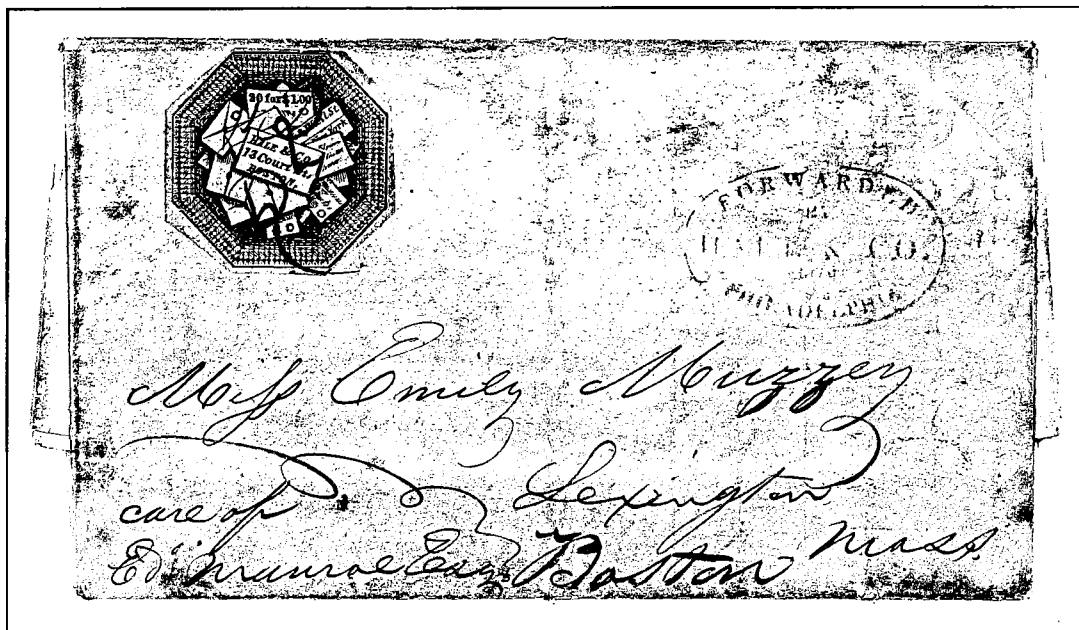 20 for $1.00
HALE & CO.
13 Court St.
BOSTON.
FORWARDED
BY
HALE & CO.
FROM
PHILADELPHIA
Miſs Emily Muzzey
Lexington
care of
Mass
Ed Munroe Esq. Boston